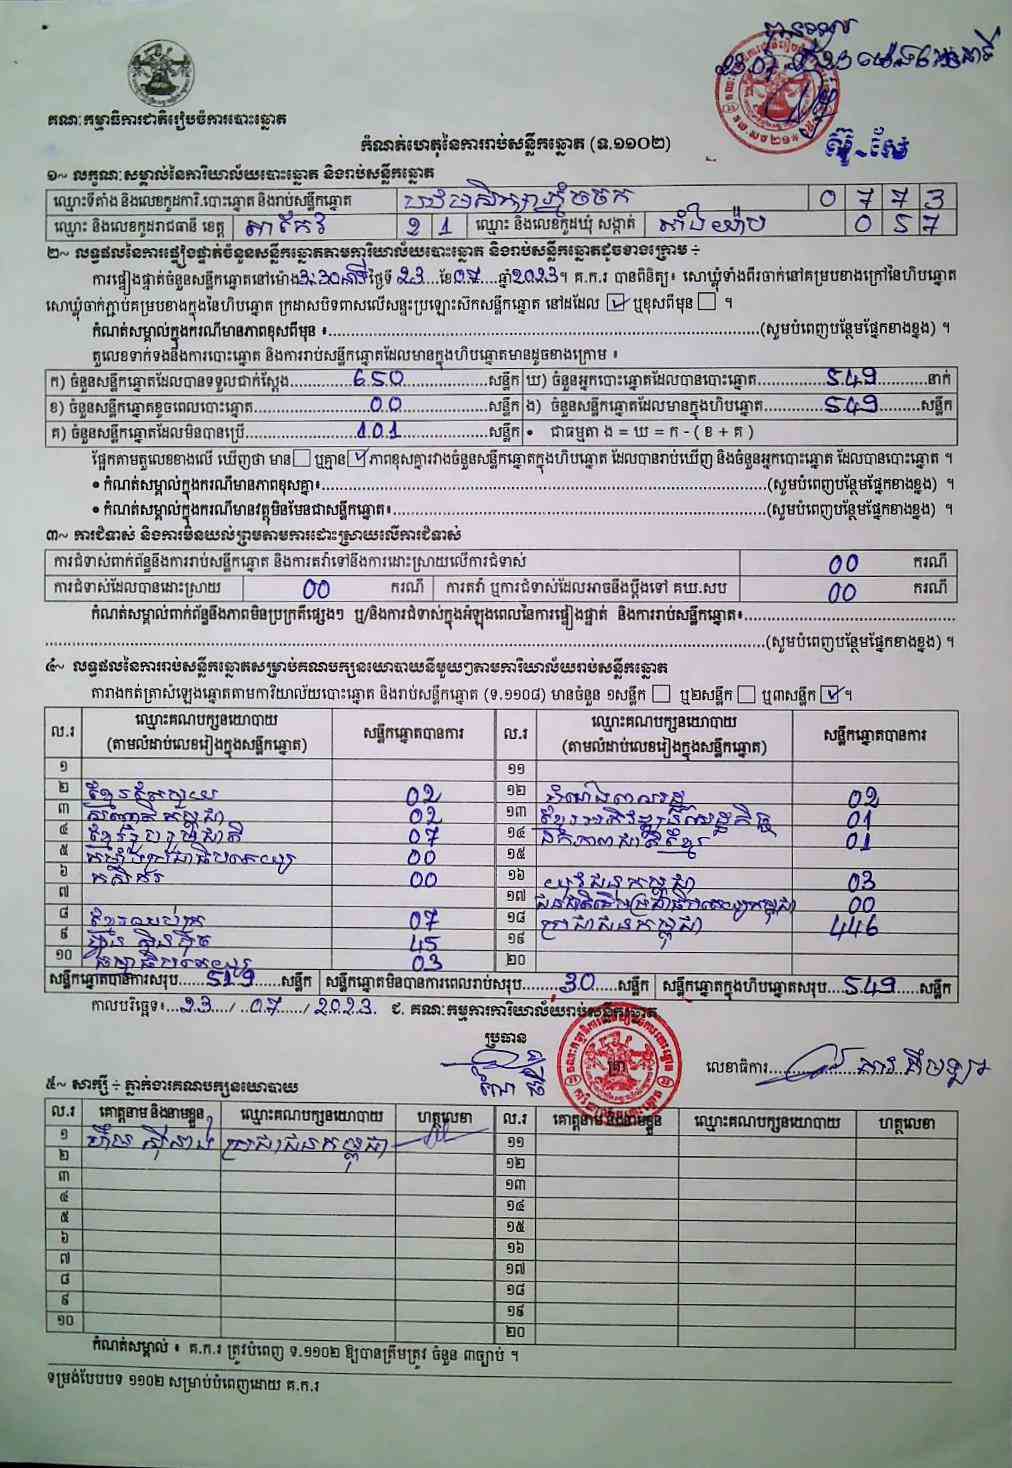 គណៈកម្មាធិការជាតិរៀបចំការបោះឆ្នោត
កំណត់ហេតុនៃការរាប់សន្លឹកឆ្នោត (ទ.១១០២)
១~ លក្ខណៈសម្គាល់នៃការិយាល័យបោះឆ្នោត និងរាប់សន្លឹកឆ្នោត
ឈ្មោះទីតាំង និងលេខកូដការិ.បោះឆ្នោត និងរាប់សន្លឹកឆ្នោត 0 7 7 3
ឈ្មោះ និងលេខកូដរាជធានី ខេត្ត តាកែវ 2 1 ឈ្មោះ និងលេខកូដឃុំ សង្កាត់ តាំងយ៉ាប 0 5 7
២~ លទ្ធផលនៃការផ្ទៀងផ្ទាត់ចំនួនសន្លឹកឆ្នោតតាមការិយាល័យបោះឆ្នោត និងរាប់សន្លឹកឆ្នោតដូចខាងក្រោម ÷
ការផ្ទៀងផ្ទាត់ចំនួនសន្លឹកឆ្នោតនៅម៉ោង 3:30នាទី ថ្ងៃទី 23 ខែ 07 ឆ្នាំ 2023។ គ.ក.រ បានពិនិត្យ៖ សោឃ្លុំទាំងពីរចាក់នៅគម្របខាងក្រៅនៃហិបឆ្នោត
សោឃ្លុំចាក់ភ្ជាប់គម្របខាងក្នុងនៃហិបឆ្នោត ក្រដាសបិទពាសលើសន្ទះប្រឡោះស៊កសន្លឹកឆ្នោត នៅដដែល ☑ ឬខុសពីមុន ☐ ។
កំណត់សម្គាល់ក្នុងករណីមានភាពខុសពីមុន ៖ (សូមបំពេញបន្ថែមផ្នែកខាងខ្នង) ។
តួលេខទាក់ទងនឹងការបោះឆ្នោត និងការរាប់សន្លឹកឆ្នោតដែលមានក្នុងហិបឆ្នោតមានដូចខាងក្រោម ៖
ក) ចំនួនសន្លឹកឆ្នោតដែលបានទទួលជាក់ស្តែង 650 សន្លឹក ឃ) ចំនួនអ្នកបោះឆ្នោតដែលបានបោះឆ្នោត 549 នាក់
ខ) ចំនួនសន្លឹកឆ្នោតខូចពេលបោះឆ្នោត 00 សន្លឹក ង) ចំនួនសន្លឹកឆ្នោតដែលមានក្នុងហិបឆ្នោត 549 សន្លឹក
គ) ចំនួនសន្លឹកឆ្នោតដែលមិនបានប្រើ 101 សន្លឹក • ជាធម្មតា ង = ឃ = ក - ( ខ + គ )
ផ្អែកតាមតួលេខខាងលើ ឃើញថា មាន ☐ ឬគ្មាន ☑ ភាពខុសគ្នារវាងចំនួនសន្លឹកឆ្នោតក្នុងហិបឆ្នោត ដែលបានរាប់ឃើញ និងចំនួនអ្នកបោះឆ្នោត ដែលបានបោះឆ្នោត ។
• កំណត់សម្គាល់ក្នុងករណីមានភាពខុសគ្នា៖ (សូមបំពេញបន្ថែមផ្នែកខាងខ្នង) ។
• កំណត់សម្គាល់ក្នុងករណីមានវត្ថុមិនមែនជាសន្លឹកឆ្នោត៖ (សូមបំពេញបន្ថែមផ្នែកខាងខ្នង) ។
៣~ ការជំទាស់ និងការមិនយល់ព្រមតាមការដោះស្រាយលើការជំទាស់
ការជំទាស់ពាក់ព័ន្ធនឹងការរាប់សន្លឹកឆ្នោត និងការតវ៉ាទៅនឹងការដោះស្រាយលើការជំទាស់ 00 ករណី
ការជំទាស់ដែលបានដោះស្រាយ 00 ករណី ការតវ៉ា ឬការជំទាស់ដែលអាចនឹងប្តឹងទៅ គឃ.សប 00 ករណី
កំណត់សម្គាល់ពាក់ព័ន្ធនឹងភាពមិនប្រក្រតីផ្សេងៗ ឬ/និងការជំទាស់ក្នុងអំឡុងពេលនៃការផ្ទៀងផ្ទាត់ និងការរាប់សន្លឹកឆ្នោត៖
(សូមបំពេញបន្ថែមផ្នែកខាងខ្នង) ។
៤~ លទ្ធផលនៃការរាប់សន្លឹកឆ្នោតសម្រាប់គណបក្សនយោបាយនីមួយៗតាមការិយាល័យរាប់សន្លឹកឆ្នោត
តារាងកត់ត្រាសំឡេងឆ្នោតតាមការិយាល័យបោះឆ្នោត និងរាប់សន្លឹកឆ្នោត (ទ.១១០៨) មានចំនួន ១សន្លឹក ☐ ឬ២សន្លឹក ☐ ឬ៣សន្លឹក ☑ ។
ល.រ ឈ្មោះគណបក្សនយោបាយ (តាមលំដាប់លេខរៀងក្នុងសន្លឹកឆ្នោត) សន្លឹកឆ្នោតបានការ ល.រ ឈ្មោះគណបក្សនយោបាយ (តាមលំដាប់លេខរៀងក្នុងសន្លឹកឆ្នោត) សន្លឹកឆ្នោតបានការ
១ ១១
២ 02 ១២ 02
៣ 02 ១៣ ខ្មែរអភិវឌ្ឍន៍សេដ្ឋកិច្ច 01
៤ ខ្មែររួបរួមជាតិ 07 ១៤ ឯកភាពជាតិខ្មែរ 01
៥ កម្លាំងប្រជាធិបតេយ្យ 00 ១៥
៦ កសិករ 00 ១៦ យុវជនកម្ពុជា 03
៧ ១៧ ជនជាតិដើមប្រជាធិបតេយ្យកម្ពុជា 00
៨ ខ្មែរឈប់ក្រ 07 ១៨ ប្រជាជនកម្ពុជា 446
៩ ហ្វ៊ុនស៊ិនប៉ិច 45 ១៩
១០ ធម្មាធិបតេយ្យ 03 ២០
សន្លឹកឆ្នោតបានការសរុប 519 សន្លឹក សន្លឹកឆ្នោតមិនបានការពេលរាប់សរុប 30 សន្លឹក សន្លឹកឆ្នោតក្នុងហិបឆ្នោតសរុប 549 សន្លឹក
កាលបរិច្ឆេទ៖ 23 / 07 / 2023 ជ. គណៈកម្មការការិយាល័យរាប់សន្លឹកឆ្នោត
ប្រធាន
លេខាធិការ
៥~ សាក្សី ÷ ភ្នាក់ងារគណបក្សនយោបាយ
ល.រ គោត្តនាម និងនាមខ្លួន ឈ្មោះគណបក្សនយោបាយ ហត្ថលេខា ល.រ គោត្តនាម និងនាមខ្លួន ឈ្មោះគណបក្សនយោបាយ ហត្ថលេខា
១ ប្រជាជនកម្ពុជា ១១
២ ១២
៣ ១៣
៤ ១៤
៥ ១៥
៦ ១៦
៧ ១៧
៨ ១៨
៩ ១៩
១០ ២០
កំណត់សម្គាល់ ៖ គ.ក.រ ត្រូវបំពេញ ទ.១១០២ ឱ្យបានត្រឹមត្រូវ ចំនួន ៣ច្បាប់ ។
ទម្រង់បែបបទ ១១០២ សម្រាប់បំពេញដោយ គ.ក.រ